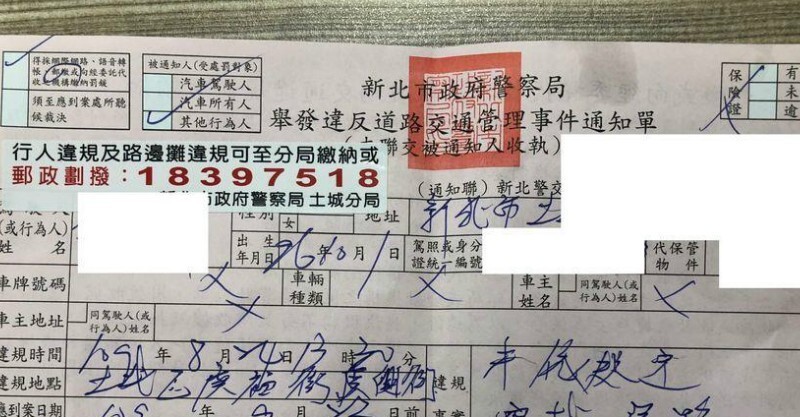 得採網際網路、語音轉
帳、郵繳或向經委託代
收之機構繳納罰鍰
須至應到案處所聽
候裁決
被通知人(受處罰對象)
汽車駕駛人
汽車所有人
其他行為人
新北市政府警察局
舉發違反道路交通管理事件通知單
交被通知人收執)
保險證
有
未
逾
行人違規及路邊攤違規可至分局繳納或
郵政劃撥:18397518
新北市政府警察局 土城分局
(通知聯)新北警交
(或行為人)
姓名
性別
女
地址
新北市土
出生
年月日
年 月 日
駕照或身分
證統一編號
代保管
物件
車牌號碼
車輛
種類
車主
姓名
同駕駛人(或
行為人)姓名
車主地址
同駕駛人(或
行為人)姓名
違規時間
109年8月24日13時20分
違規地點
土城區
違規
事實
應到案日期
109年
月
日前